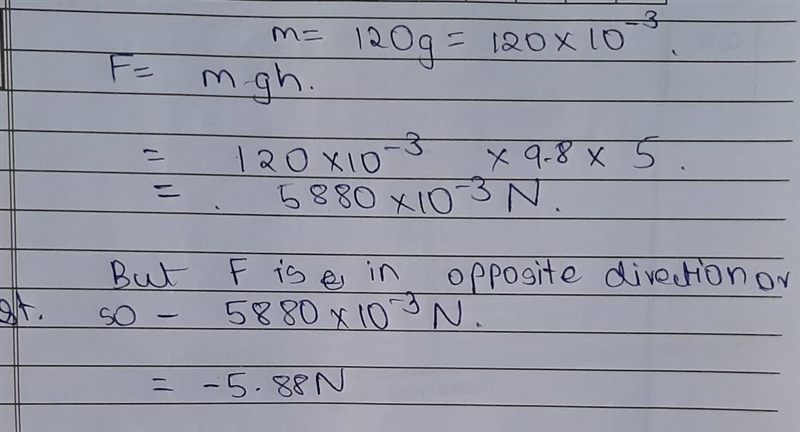 m= 120g = 120×10⁻³.
F= m gh.
= 120×10⁻³ × 9.8 × 5.
= . 5880×10⁻³ N.
But F is in opposite direction or
gt. so - 5880×10⁻³ N.
= -5.88N